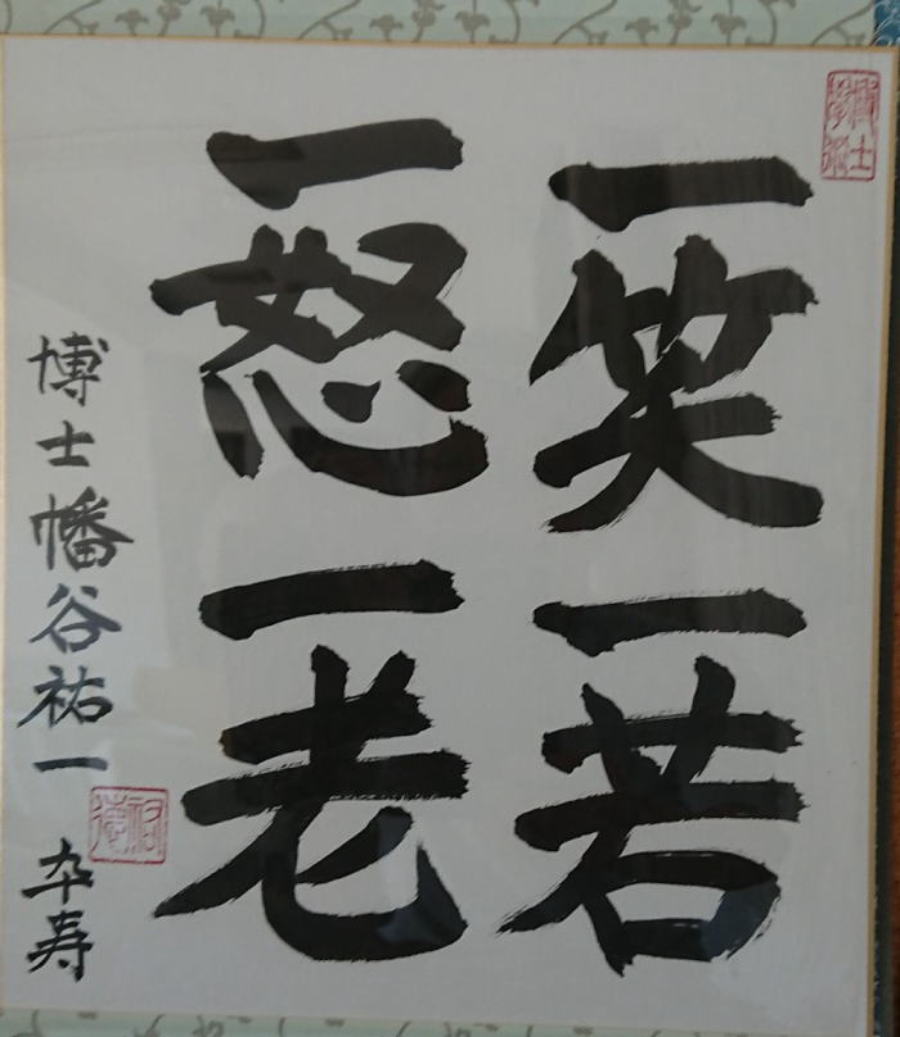 一笑一若
一怒一老
博士幡谷祐一
卒寿